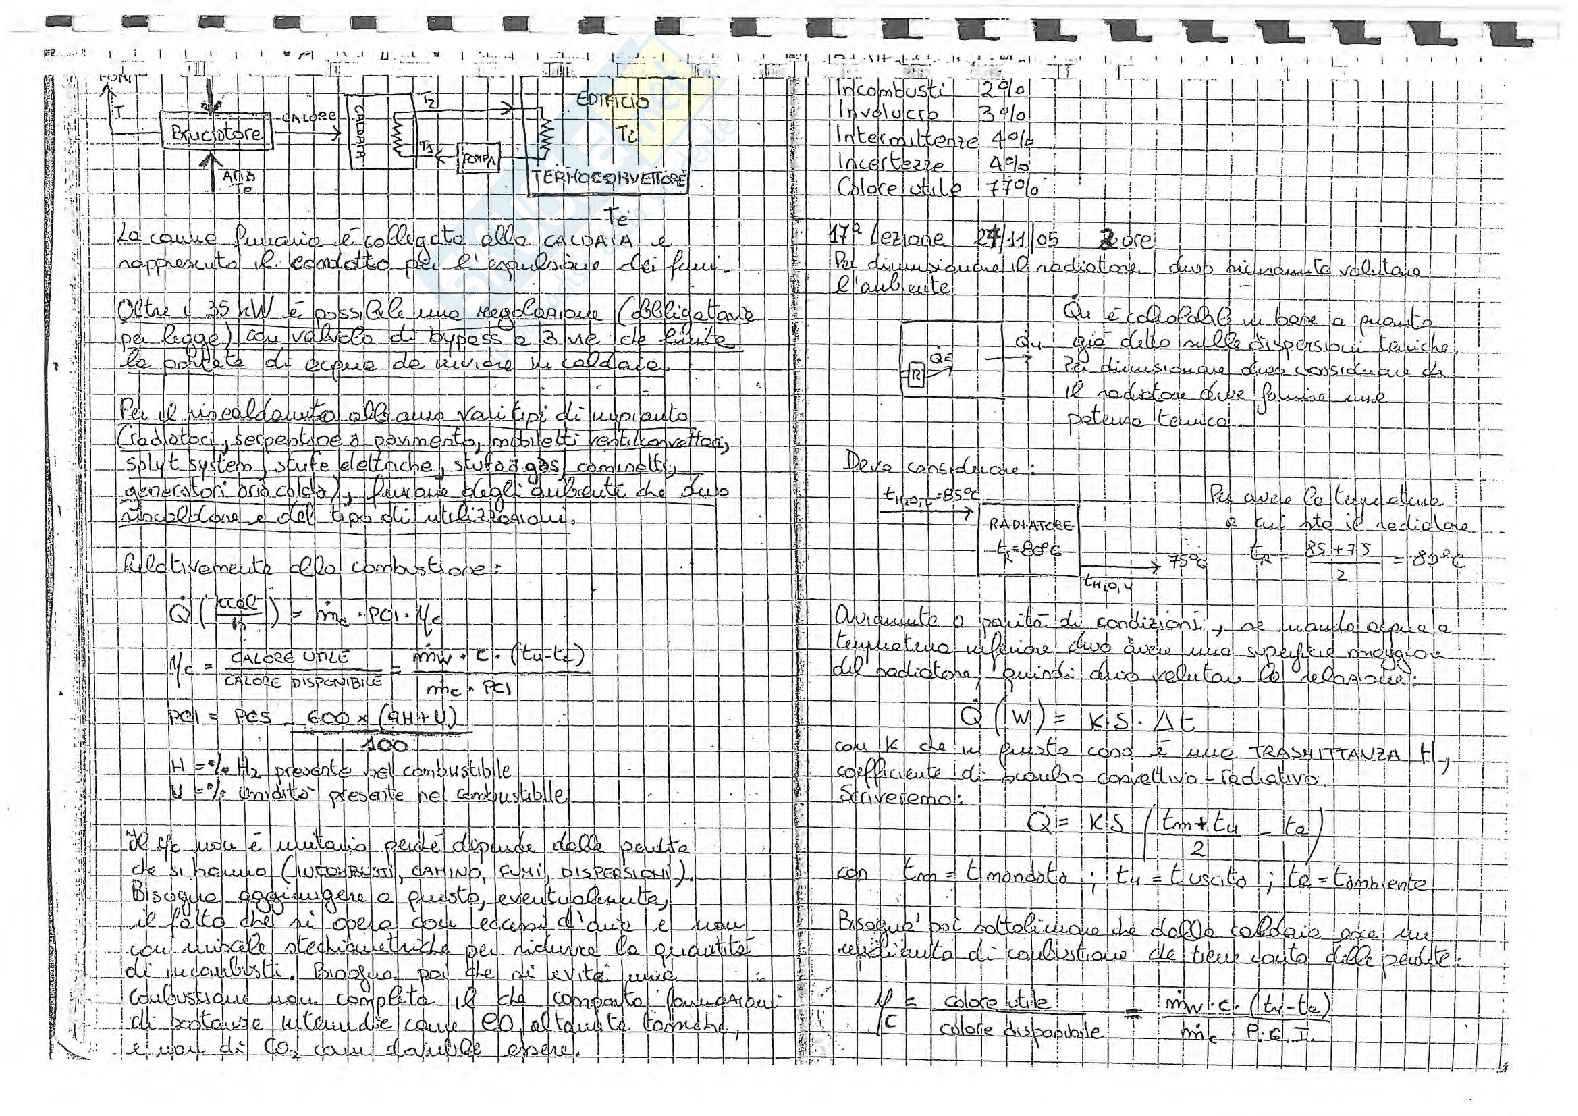 FUMI
T
Bruciatore
ARIA
Te
CALORE
CALDAIA
T2
T3
POMPA
EDIFICIO
Ti
TERMOCONVETTORE
Te
La canna fumaria è collegata alla CALDAIA e
rappresenta il condotto per l'espulsione dei fumi.
Oltre i 35 kW è possibile una regolazione (obbligatoria
per legge) con valvola di bypass a 3 vie che limita
la portata di acqua da inviare in caldaia.
Per il riscaldamento abbiamo vari tipi di impianto
(radiatori, serpentine a pavimento, mobiletti ventilconvettori,
splyt system, stufe elettriche, stufe a gas, caminetti,
generatori aria calda), funzione degli ambienti che devo
riscaldare e del tipo di utilizzazioni.
Relativamente alla combustione:
Q̇ (kcal/h) = ṁc · PCI · ηc
ηc = CALORE UTILE / CALORE DISPONIBILE = ṁw · c · (tu-te) / ṁc · PCI
PCI = PCS - 600 x (9H+U) / 100
H = % H2 presente nel combustibile
U = % umidità presente nel combustibile
Il ηc non è unitario perché dipende dalle perdite
che si hanno (INCOMBUSTI, CAMINO, FUMI, DISPERSIONI).
Bisogna aggiungere a questo, eventualmente,
il fatto che si opera con eccessi d'aria e non
con miscele stechiometriche per ridurre la quantità
di incombusti. Bisogna poi che si eviti una
combustione non completa il che comporta formazioni
di sostanze intermedie come CO, altamente tossiche,
e non di CO2 come dovrebbe essere.
Incombusti 2%
Involucro 3%
Intermittenze 4%
Incertezze 4%
Calore utile 77%
17ª Lezione 24/11/05 2 ore
Per dimensionare il radiatore devo nuovamente valutare
l'ambiente
R
Q̇e
Q̇u
Q̇u è calcolabile in base a quanto
già detto sulle dispersioni termiche.
Per dimensionare devo considerare che
il radiatore deve fornire una
potenza termica
Devo considerare:
tH2O,i = 85°C
RADIATORE
tR=80°C
75°C
tH2O,u
Per avere la temperatura
a cui sta il radiatore
tR = 85+75 / 2 = 80°C
Ovviamente a parità di condizioni, se mando acqua a
temperatura inferiore devo avere una superficie maggiore
del radiatore, quindi devo valutare la relazione:
Q̇ (W) = K·S· Δt
con K che in questo caso è una TRASMITTANZA H,
coefficiente di scambio convettivo-radiativo.
Scriveremo:
Q̇ = K S ( tm+tu / 2 - ta )
con tm = t mandata ; tu = t uscita ; ta = t ambiente
Bisogna poi sottolineare che dalla caldaia esce un
rendimento di combustione che tiene conto delle perdite:
ηc = calore utile / calore disponibile = ṁw · c · (tu-te) / ṁc P.C.I.